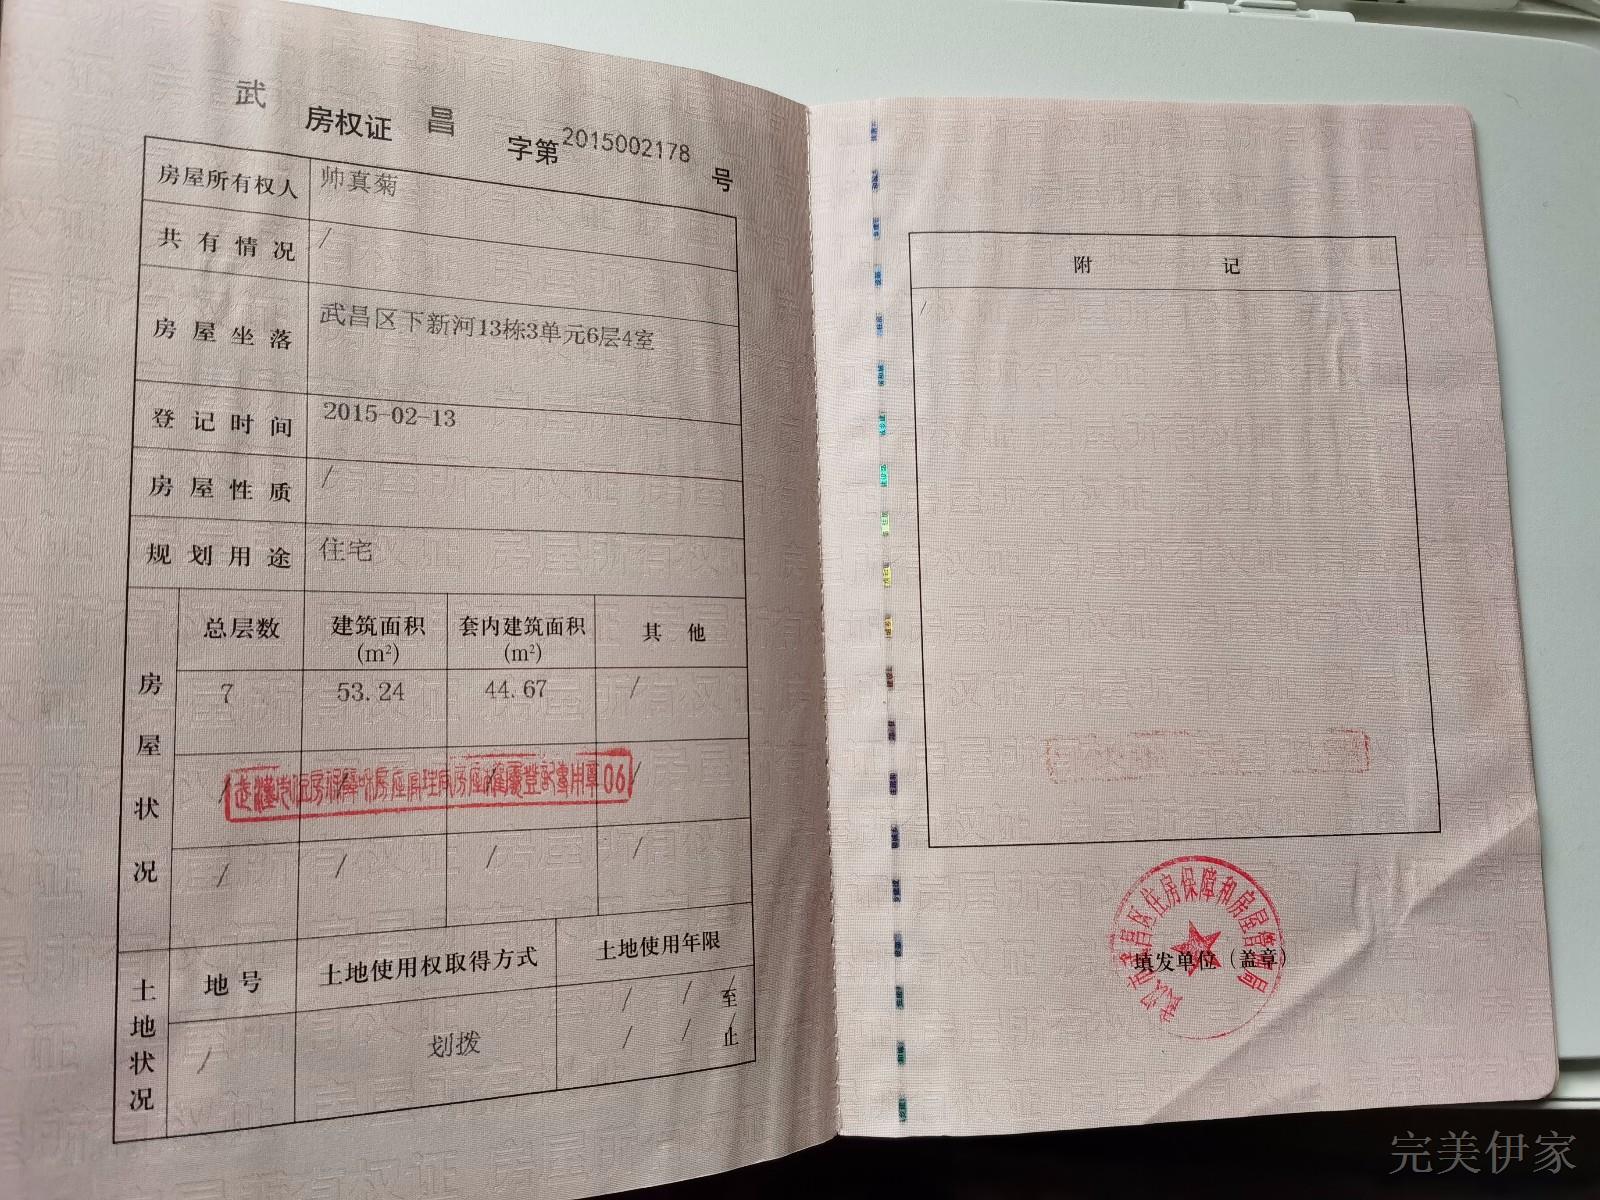 武 房权证 昌 字第2015002178 号
房屋所有权人 帅真菊
共有情况 /
房屋坐落 武昌区下新河13栋3单元6层4室
登记时间 2015-02-13
房屋性质 /
规划用途 住宅
房屋状况
总层数 建筑面积(m²) 套内建筑面积(m²) 其他
7 53.24 44.67 /
/ / / /
房产权属登记专用章06
/ / / /
土地状况
地号 土地使用权取得方式 土地使用年限
/ 划拨 / / / 至
/ / / 止
附 记
/
武汉市武昌区住房保障和房屋管理局
填发单位(盖章)
完美伊家